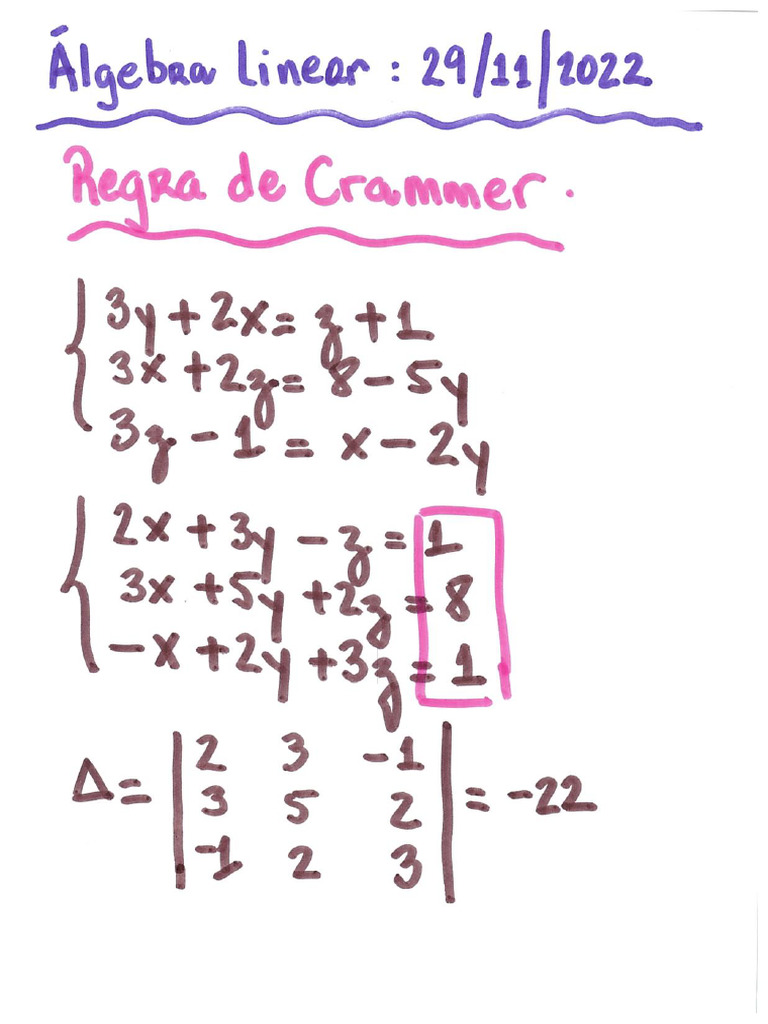 Álgebra Linear: 29/11/2022
Regra de Crammer.
3y + 2x = z + 1
3x + 2z = 8 - 5y
3z - 1 = x - 2y
2x + 3y - z = 1
3x + 5y + 2z = 8
-x + 2y + 3z = 1
2 3 -1
Δ = 3 5 2 = -22
-1 2 3